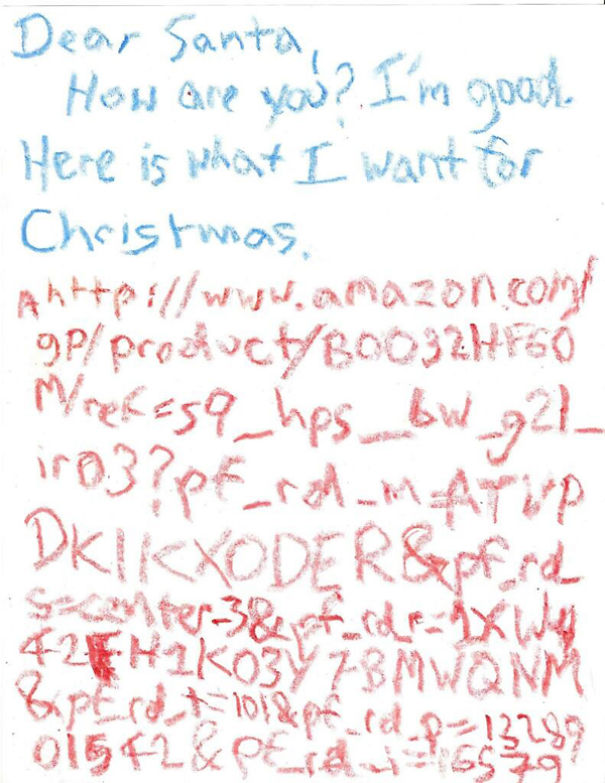 Dear Santa,
How are you? I'm good.
Here is what I want for
Christmas.
A http://www.amazon.com/
gp/product/B0032HF60
M/ref=s9_hps_bw_g21_
ir03?pf_rd_m=ATVP
DKIKX0DER&pf_rd_
s=center-3&pf_rd_r=1XWY
42FH1K03Y7BMWQNM
&pf_rd_t=101&pf_rd_p=13289
01542&pf_rd_i=165 79